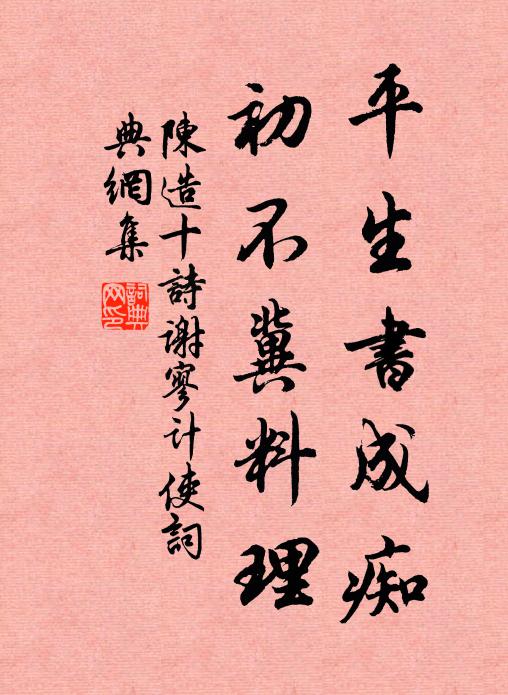 平生書成痴
初不冀料理
陳造十詩謝寥計使詞
典網集
詞典
网印